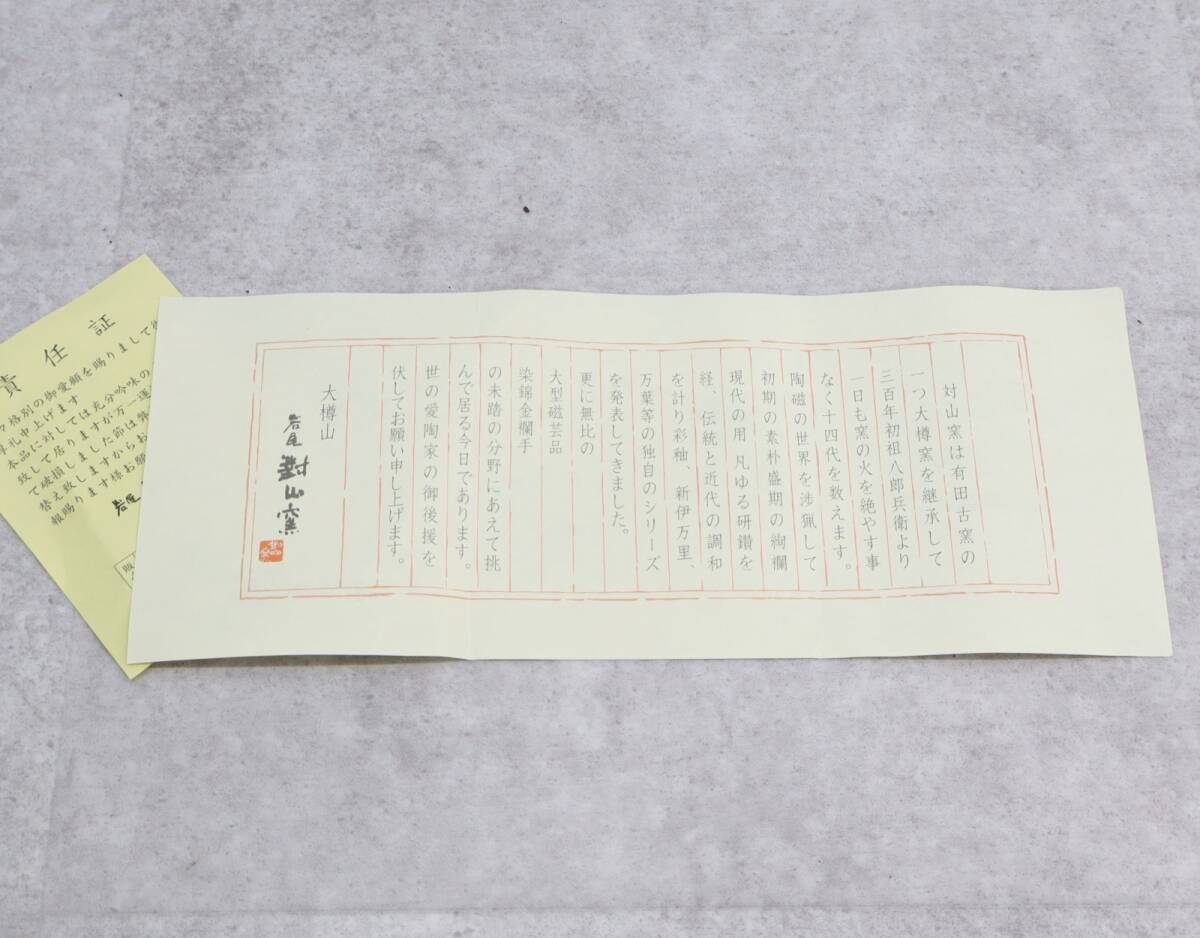 対山窯は有田古窯の
一つ大樽窯を継承して
三百年初祖八郎兵衛より
一日も窯の火を絶やす事
なく十四代を数えます。
陶磁の世界を渉猟して
初期の素朴盛期の絢爛
現代の用 凡ゆる研鑽を
経、伝統と近代の調和
を計り彩釉、新伊万里、
万葉等の独自のシリーズ
を発表してきました。
更に無比の
大型磁芸品
染錦金襴手
の未踏の分野にあえて挑
んで居る今日であります。
世の愛陶家の御後援を
伏してお願い申し上げます。
大樽山
岩尾 對山窯
責任証
々格別の御愛顧を賜りまして
厚礼申上げます
本品に対しては充分吟味の
致して居りますが万一運
て破損しました節は弊
替え致しますからお
報賜ります様お願
岩尾